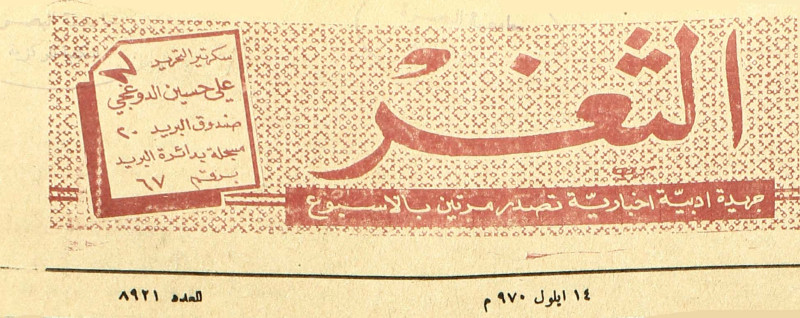 الثغر
جريدة ادبيّة اخباريّة تصدر مرتين بالاسبوع
سكرتير التحرير
علي حسين الدوغجي
صندوق البريد ٢٠
مسجلة بدائرة البريد
برقم ٦٧
١٤ ايلول ٩٧٠ م
العدد ٨٩٢١